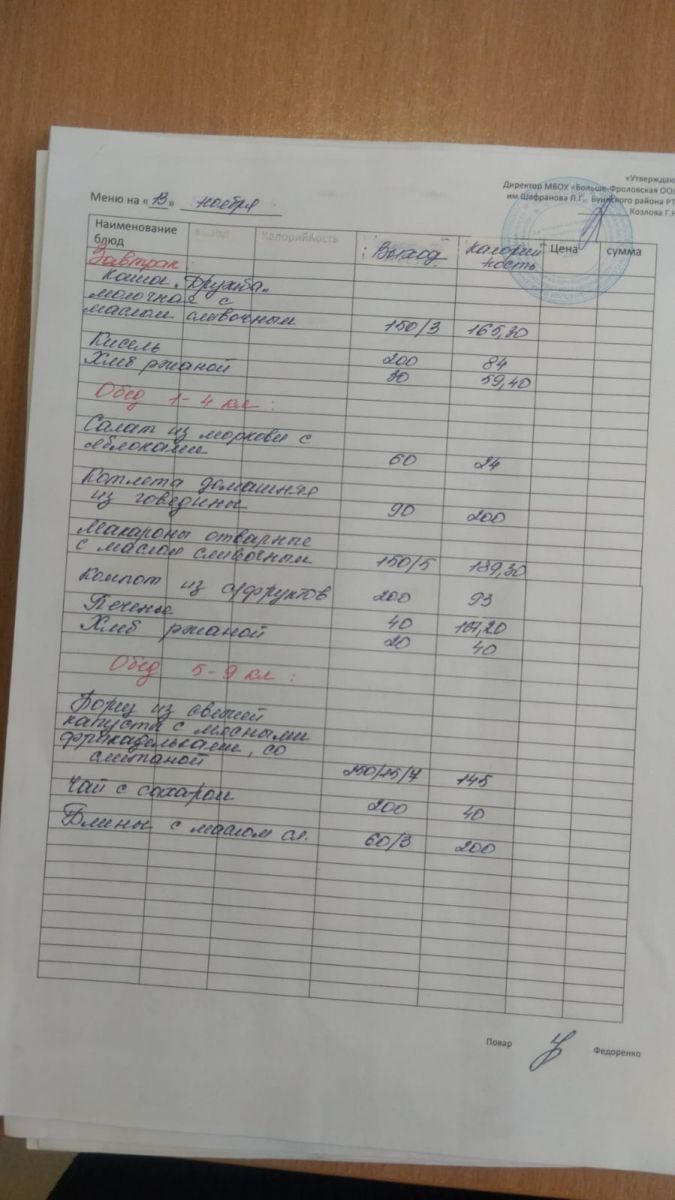 «Утверждаю
Директор МБОУ «Больше-Фроловская ООШ
им.Шафранова П.Г., Буинского района РТ
Козлова Г.Н
Меню на « 13 » ноября
Наименование блюд выход Калорийность Выход Калорийность Цена сумма
Завтрак
Каша „Дружба"
молочная с
маслом сливочным 150/3 165,30
Кисель 200 84
Хлеб ржаной 30 59,40
Обед 1-4 кл :
Салат из моркови с
яблоками 60 24
Котлета домашняя
из говедины 90 200
Макароны отварные
с маслом сливочным 150/5 189,30
Компот из с/фруктов 200 93
Печенье 40 167,20
Хлеб ржаной 20 40
Обед 5-9 кл :
Борщ из свежей
капусты с мясными
фрикадельками, со
сметаной 250/25/7 145
Чай с сахаром 200 40
Блины с маслом сл. 60/3 200
Повар Федоренко